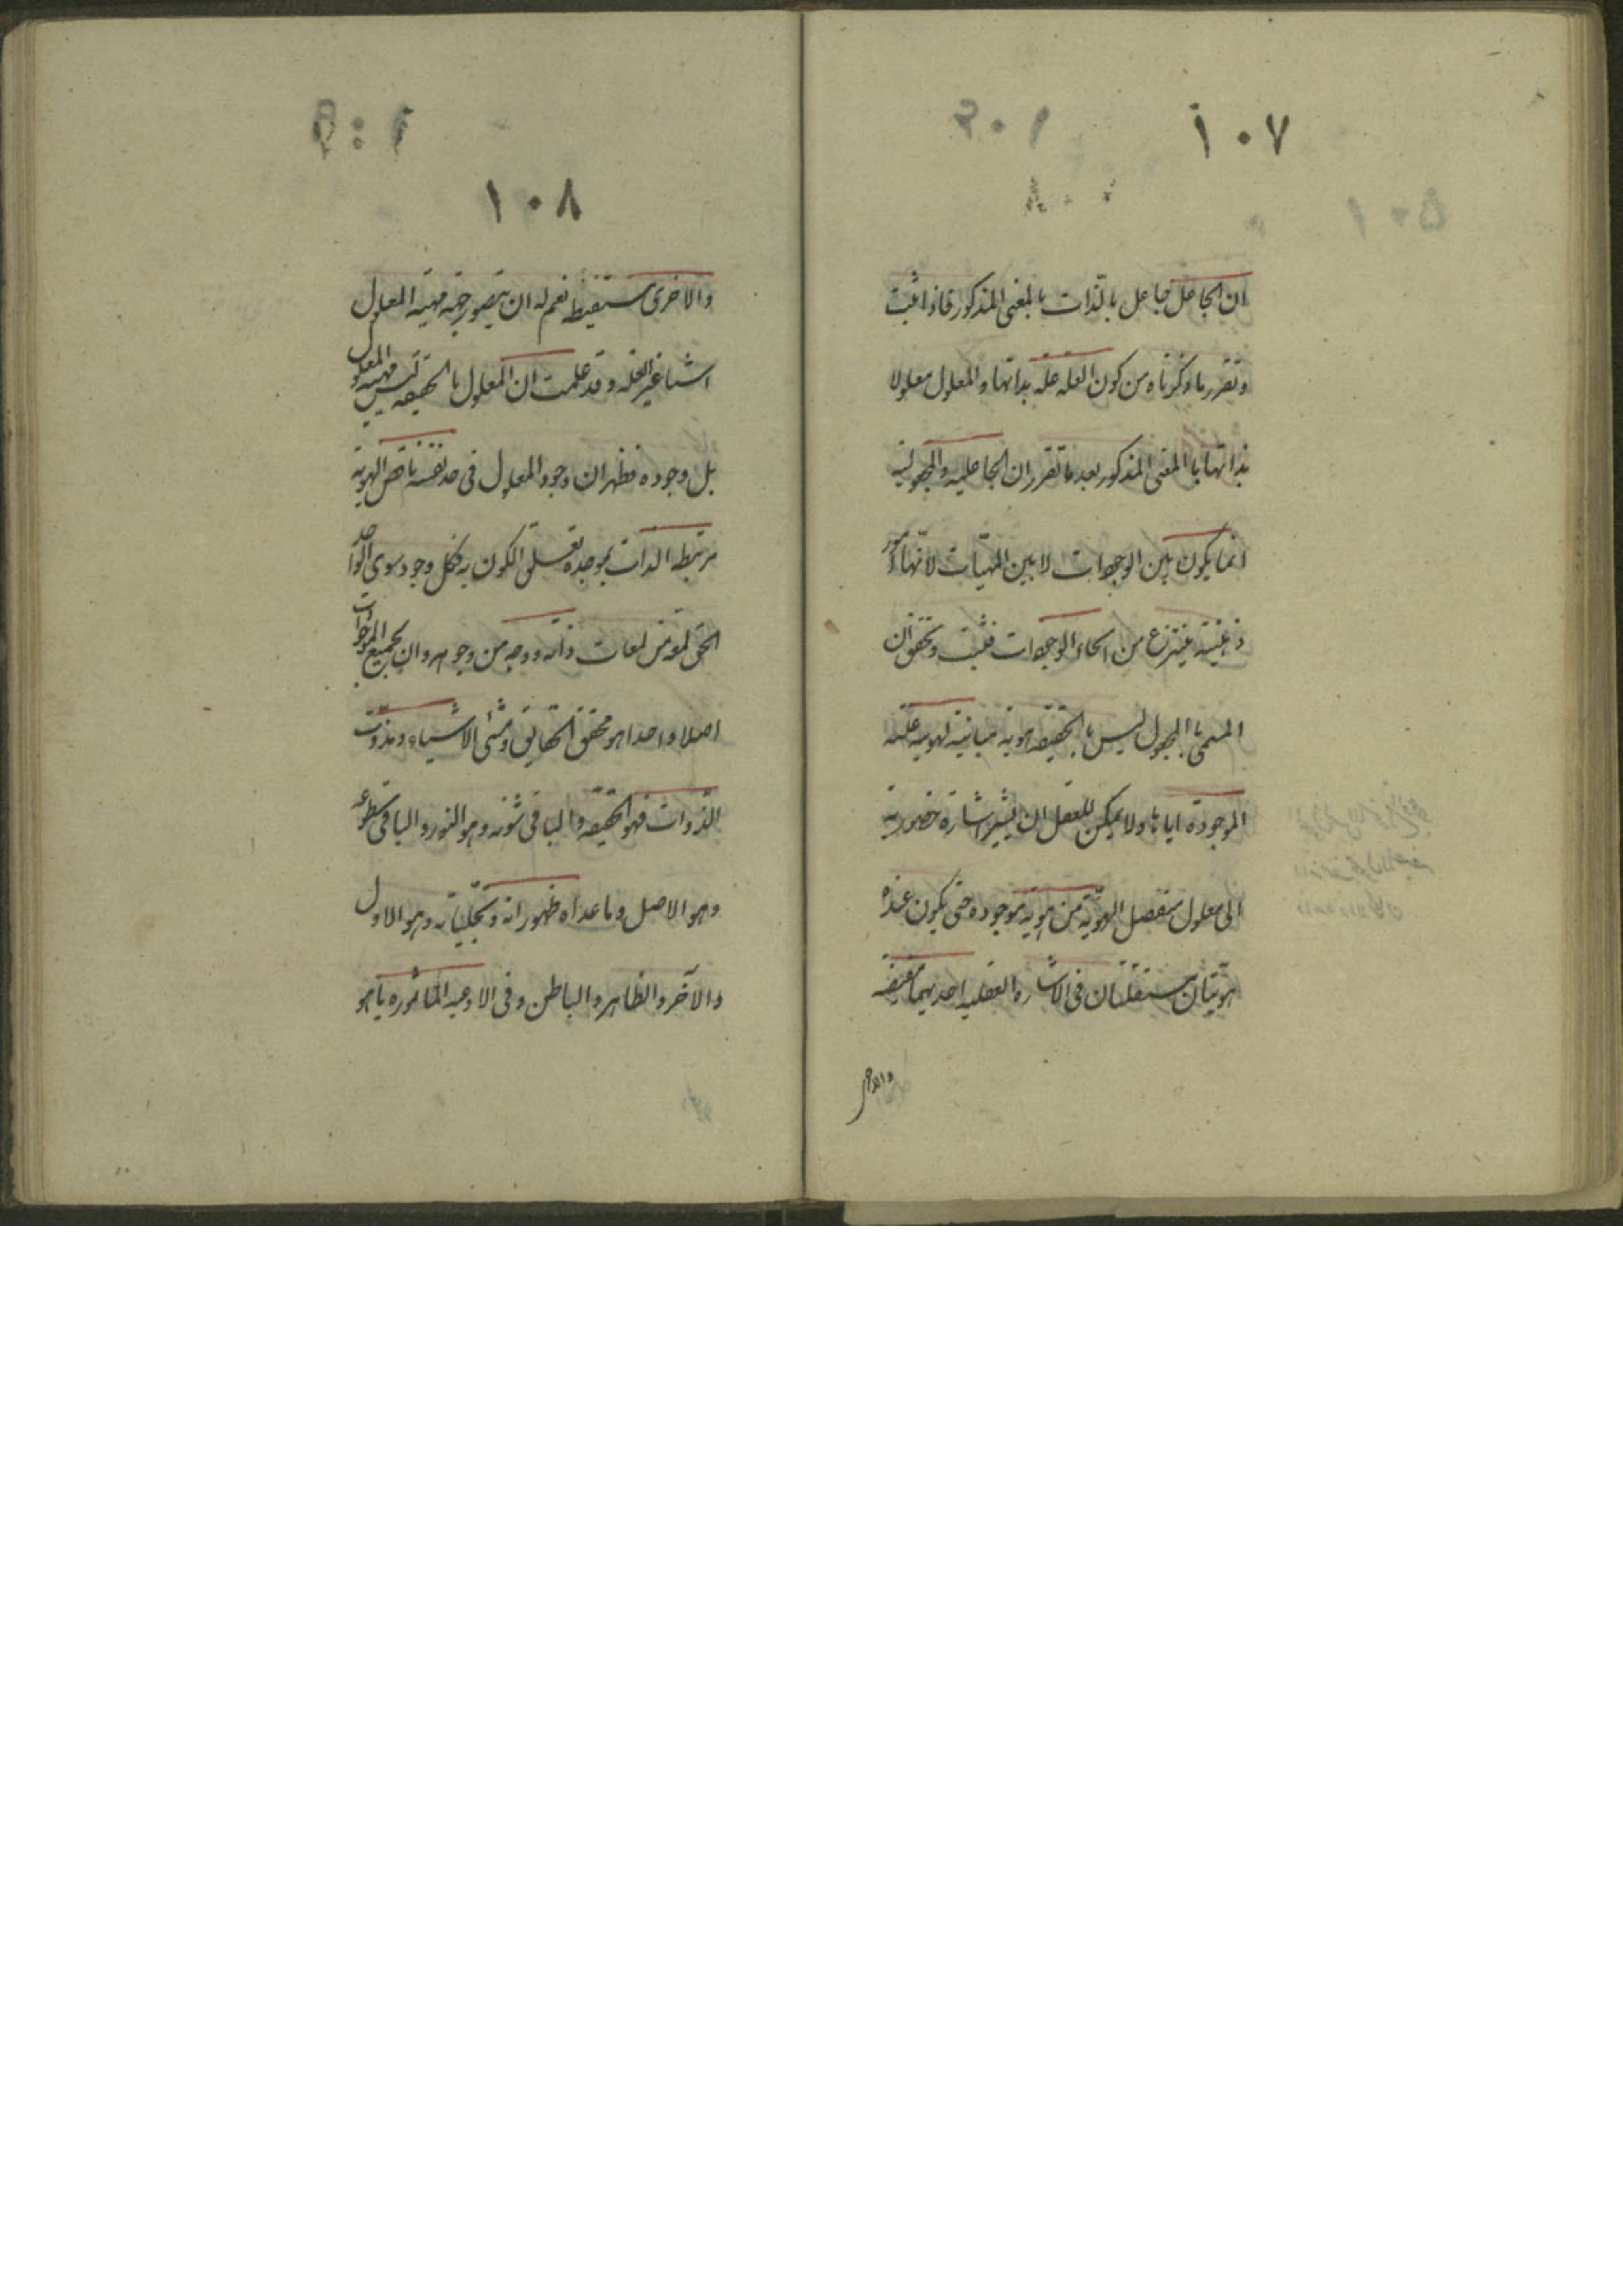 ١٠٧
ان الجاعل جاعل بالذات بالمعنى المذكور فاذا ثبت
وتقرر ما ذكرناه من كون العله عله بذاتها والمعلول معلولا
بذاتها بالمعنى المذكور بعد ما تقرر ان الجاعليه والمجعوليه
انما يكون بين الوجودات لا بين المهيات لانها امور
ذهنيته ينتزع من انحاء الوجودات فثبت وتحقق ان
المسمى بالمجعول ليس بالحقيقه هويه مباينه لهويه علته
الموجودة اياها ولا يمكن للعقل ان يشير اشارة حضوريه
الى معلول منفصل الهويه من هويه موجوده حتى يكون عنده
هويتان مستقلتان فى الاشاره العقليه احديهما مفيضه
والاخرى
١٠٨
والاخرى مستفيضه نعم له ان يتصور جهة مهيه المعلول
شيئا غير العله وقد علمت ان المعلول بالحقيقه ليس مهيه المعلول
بل وجوده فظهر ان وجود المعلول فى حد نفسه ناقص الهويه
مرتبطه الذات بموجده تعلقى الكون به فكل وجود سوى الواحد
الحق لمعه من لمعات ذاته ووجه من وجوهه وان لجميع الموجودات
اصلا واحدا هو محقق الحقايق ومشئ الاشياء ومذوت
الذوات فهو الحقيقه والباقى شئونه وهو النور والباقى سطوعه
وهو الاصل وما عداه ظهوراته وتجلياته وهو الاول
والآخر والظاهر والباطن وفى الادعيه الماثوره ياهو